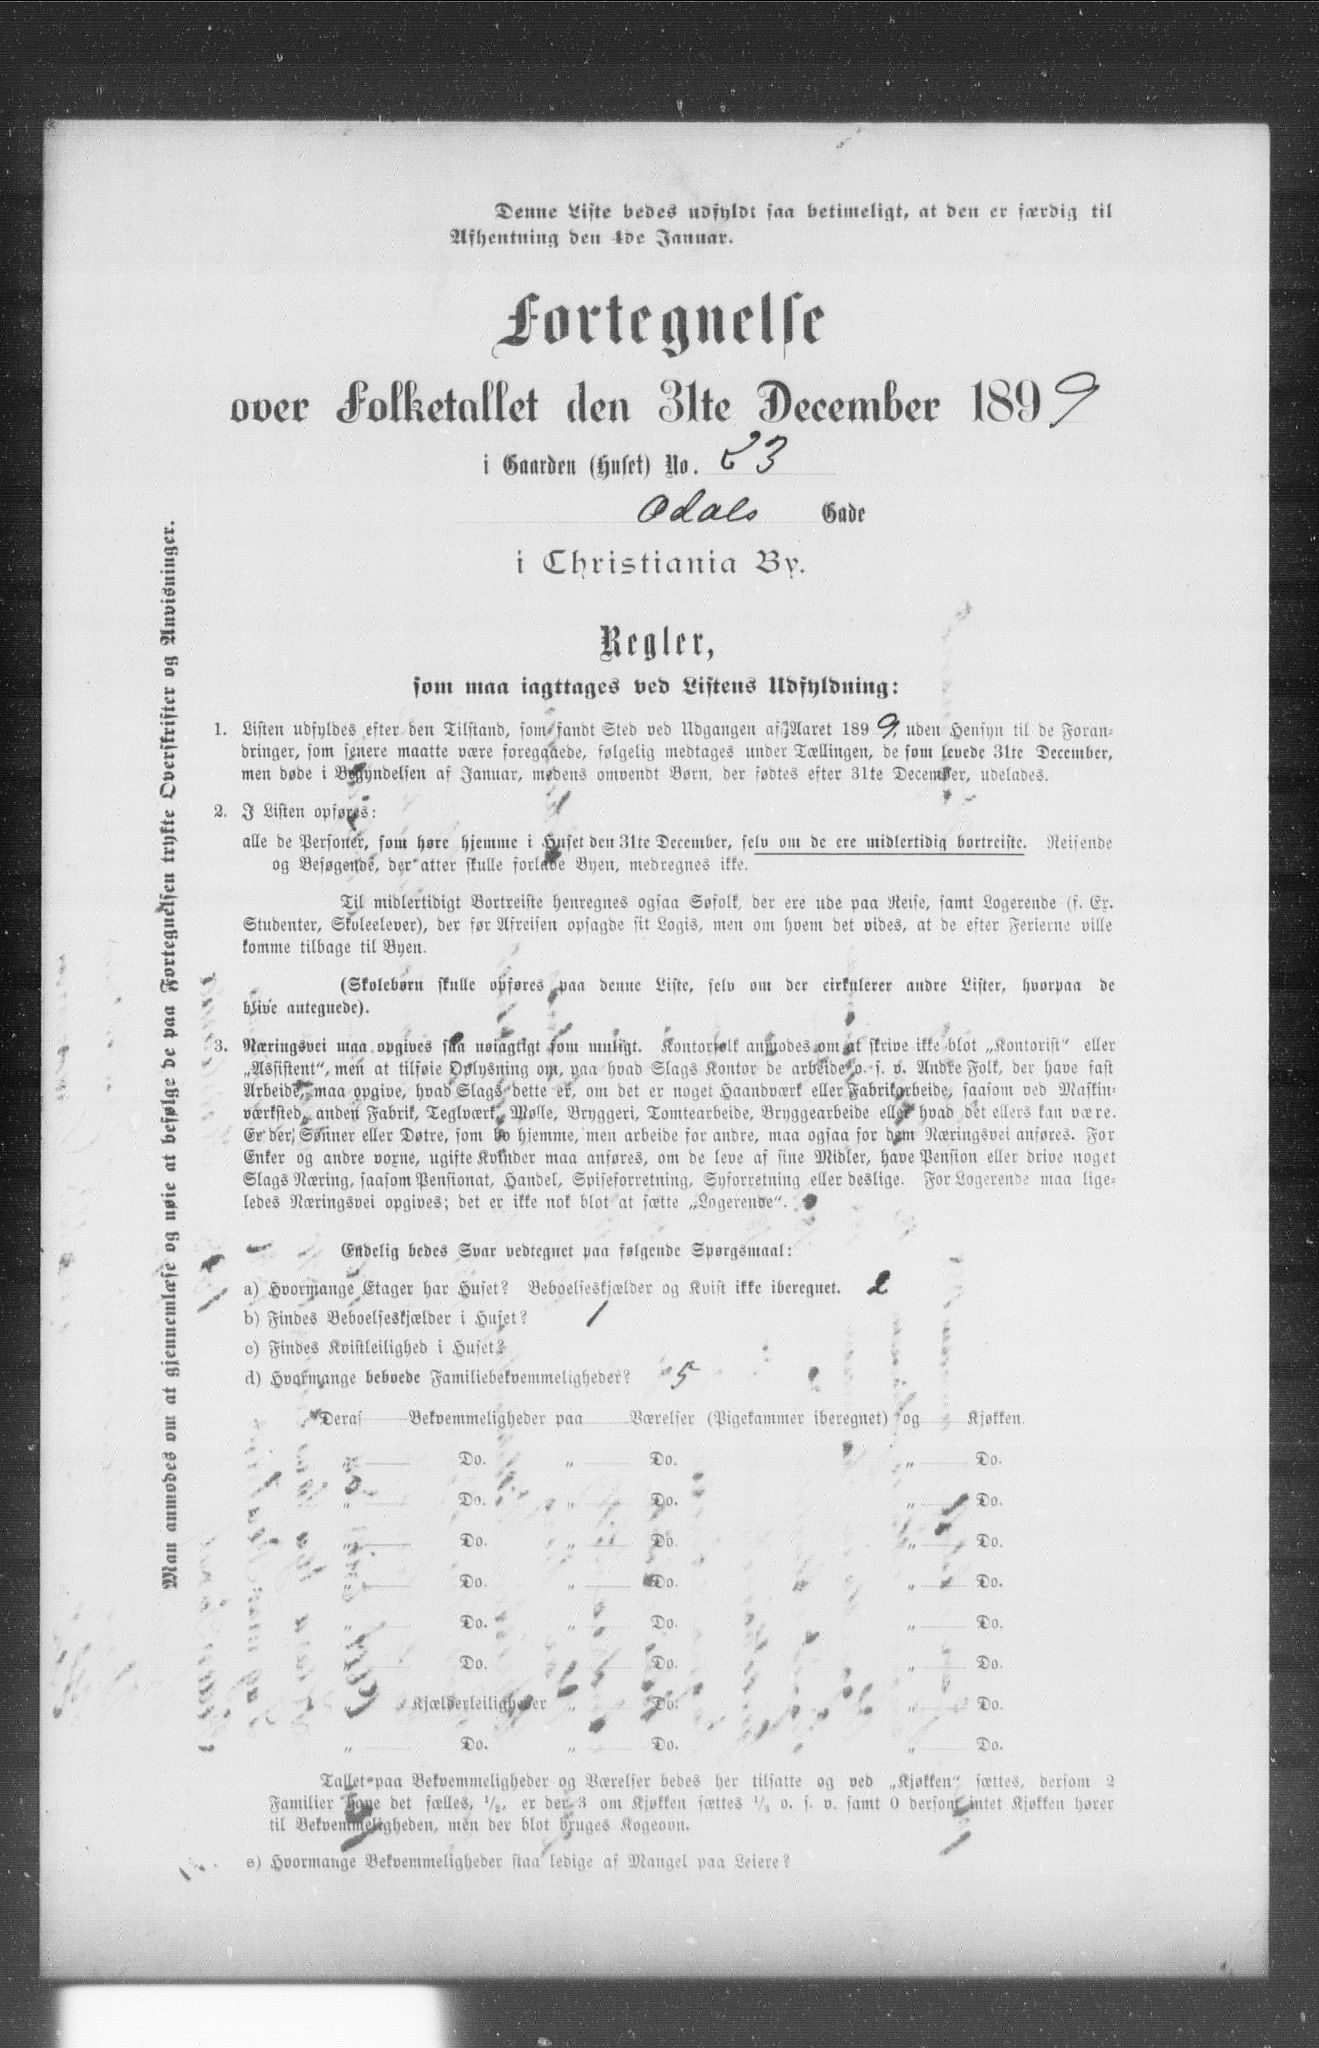 Denne Liste bedes udfyldt saa betimeligt, at den er færdig til
Afhentning den 4de Januar.
Fortegnelse
over Folketallet den 31te December 1899
i Gaarden (Huset) No. 23
Odals Gade
i Christiania By.
Regler,
som maa iagttages ved Listens Udfyldning:
1. Listen udfyldes efter den Tilstand, som fandt Sted ved Udgangen af Aaret 1899, uden Hensyn til de Foran-
dringer, som senere maatte være foregaaede, følgelig medtages under Tællingen, de som levede 31te December,
men døde i Begyndelsen af Januar, medens omvendt Børn, der fødtes efter 31te December, udelades.
2. I Listen opføres:
alle de Personer, som høre hjemme i Huset den 31te December, selv om de ere midlertidig bortreiste. Reisende
og Besøgende, der atter skulle forlade Byen, medregnes ikke.
Til midlertidigt Bortreiste henregnes ogsaa Søfolk, der ere ude paa Reise, samt Logerende (f. Ex.
Studenter, Skoleelever), der før Afreisen opsagde sit Logis, men om hvem det vides, at de efter Ferierne ville
komme tilbage til Byen.
(Skolebørn skulle opføres paa denne Liste, selv om der cirkulerer andre Lister, hvorpaa de
blive antegnede).
3. Næringsvei maa opgives saa nøiagtigt som muligt. Kontorfolk anmodes om at skrive ikke blot „Kontorist“ eller
„Assistent“, men at tilføie Oplysning om, paa hvad Slags Kontor de arbeide o. s. v. Andre Folk, der have fast
Arbeide, maa opgive, hvad Slags dette er, om det er noget Haandværk eller Fabrikarbeide, saasom ved Maskin-
værksted, anden Fabrik, Teglværk, Mølle, Bryggeri, Tomtearbeide, Bryggearbeide eller hvad det ellers kan være.
Er der Sønner eller Døtre, som bo hjemme, men arbeide for andre, maa ogsaa for dem Næringsvei anføres. For
Enker og andre voxne, ugifte Kvinder maa anføres, om de leve af sine Midler, have Pension eller drive noget
Slags Næring, saasom Pensionat, Handel, Spiseforretning, Syforretning eller deslige. For Logerende maa lige-
ledes Næringsvei opgives; det er ikke nok blot at sætte „Logerende“.
Endelig bedes Svar vedtegnet paa følgende Spørgsmaal:
a) Hvormange Etager har Huset? Beboelseskjælder og Kvist ikke iberegnet. 2
b) Findes Beboelseskjælder i Huset? 1
c) Findes Kvistleilighed i Huset?
d) Hvormange beboede Familiebekvemmeligheder? 5
Deraf Bekvemmeligheder paa Værelser (Pigekammer iberegnet) og Kjøkken.
„ Do. „ Do. „ Do.
„ Do. „ Do. „ Do.
„ Do. „ Do. „ Do.
„ Do. „ Do. „ Do.
„ Do. „ Do. „ Do.
„ Do. „ Do. „ Do.
„ Kjælderleiligheder „ Do. „ Do.
„ Do. „ Do. „ Do.
Tallet paa Bekvemmeligheder og Værelser bedes her tilsatte og ved „Kjøkken“ sættes, dersom 2
Familier have det fælles, 1/2, er der 3 om Kjøkken sættes 1/3 o. s. v. samt 0 dersom intet Kjøkken hører
til Bekvemmeligheden, men der blot bruges Kogeovn.
e) Hvormange Bekvemmeligheder staa ledige af Mangel paa Leiere?
Man anmodes om at gjennemlæse og nøie at befølge de paa Fortegnelsen trykte Overskrifter og Anvisninger.